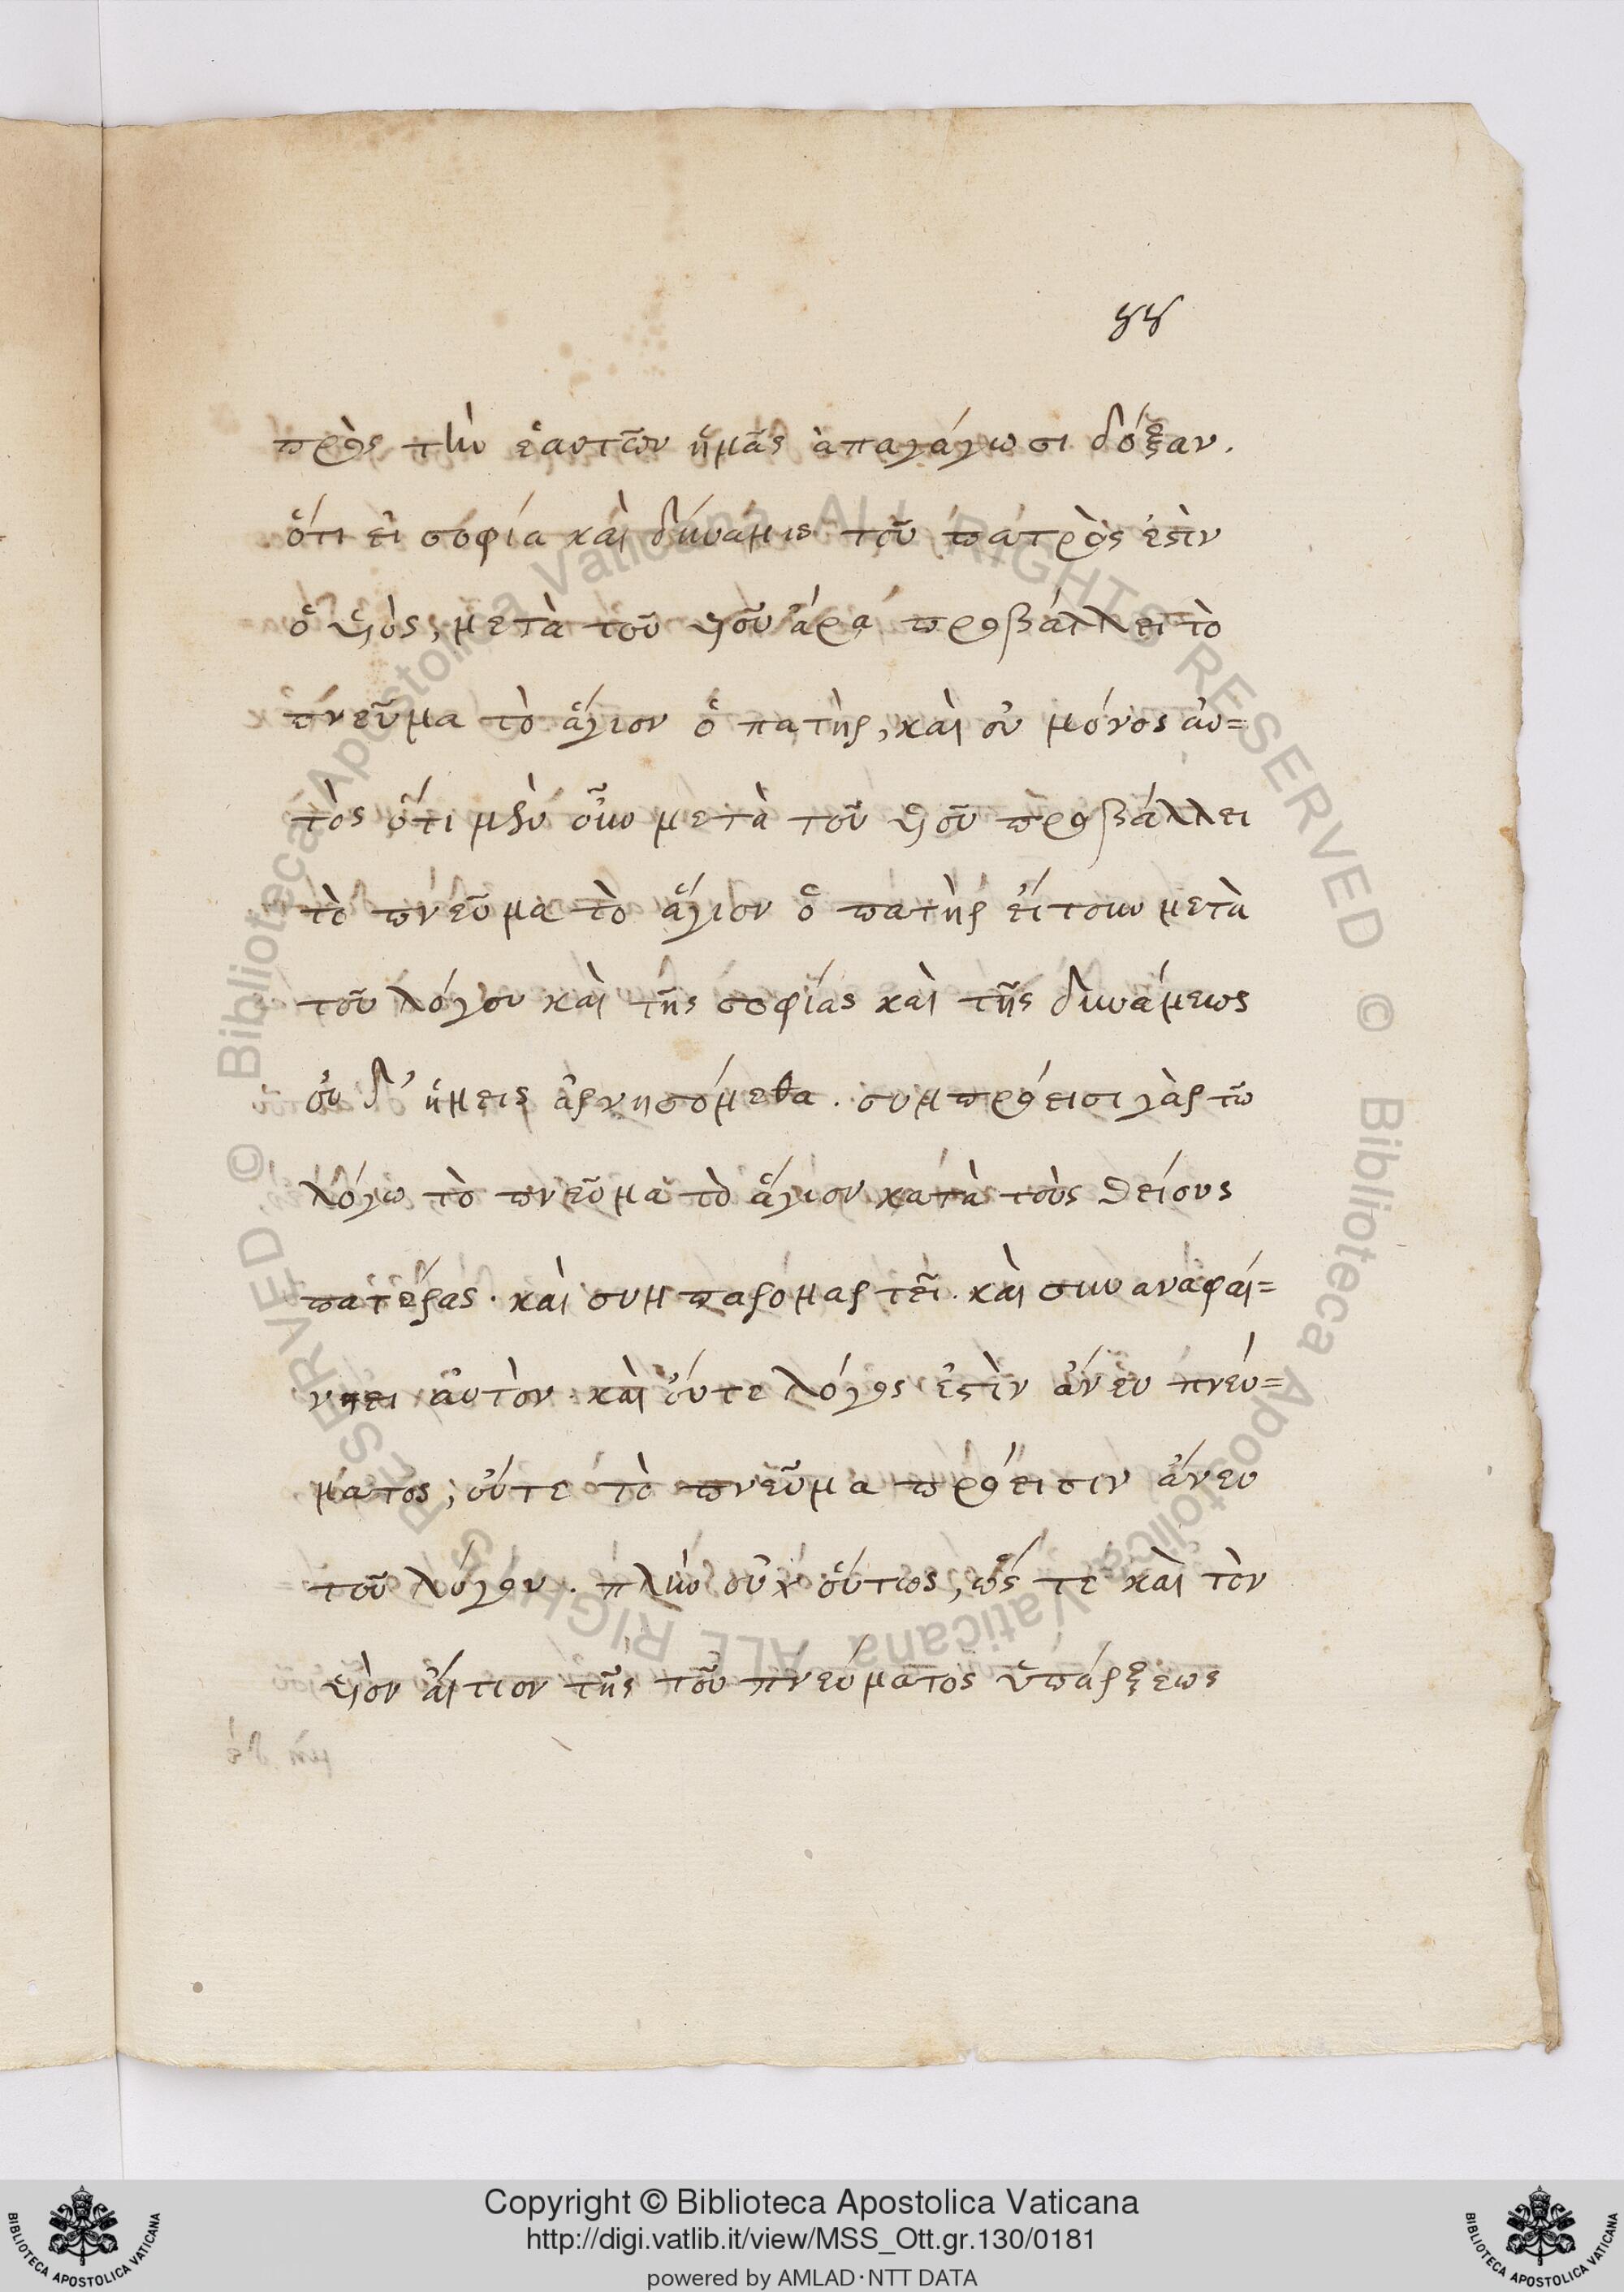 88
πρὸς τὴν ἑαυτῶν ἡμᾶς ἀπαγάγωσι δόξαν.
ὅτι εἰ σοφία καὶ δύναμις τοῦ πατρὸς ἐστὶν
ὁ υἱὸς, μετὰ τοῦ υἱοῦ ἄρα προβάλλει τὸ
πνεῦμα τὸ ἅγιον ὁ πατὴρ, καὶ οὐ μόνος αὐ=
τὸς ὅτι μὲν οὖν μετὰ τοῦ υἱοῦ προβάλλει
τὸ πνεῦμα τὸ ἅγιον ὁ πατὴρ εἴτουν μετὰ
τοῦ λόγου καὶ τῆς σοφίας καὶ τῆς δυνάμεως
οὐ δ' ἡμεῖς ἀρνησόμεθα. συμπρόεισι γὰρ τῶ
λόγω τὸ πνεῦμα τὸ ἅγιον κατὰ τοὺς θείους
πατέρας. καὶ συμπαρομαρτεῖ. καὶ συναναφαί=
νει αὐτὸν. καὶ οὔτε λόγος ἐστὶν ἄνευ πνεύ=
ματος, οὔτε τὸ πνεῦμα πρόεισιν ἄνευ
τοῦ λόγου. πλὴν οὐχ οὕτως, ὥς τε καὶ τὸν
υἱὸν αἴτιον τῆς τοῦ πνεύματος ὑπάρξεως
© Biblioteca Apostolica Vaticana ALL RIGHTS RESERVED
© Biblioteca Apostolica Vaticana ALL RIGHTS RESERVED
Copyright © Biblioteca Apostolica Vaticana
http://digi.vatlib.it/view/MSS_Ott.gr.130/0181
powered by AMLAD·NTT DATA
BIBLIOTECA APOSTOLICA VATICANA
BIBLIOTECA APOSTOLICA VATICANA